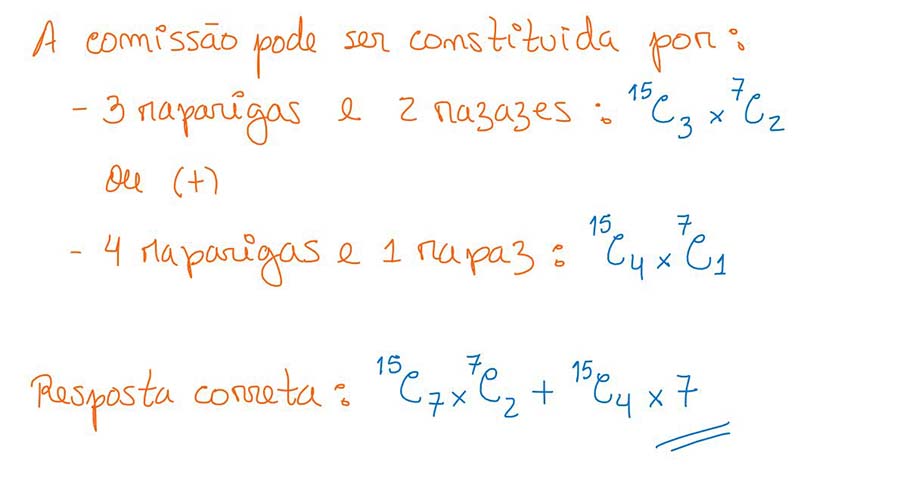 A comissão pode ser constituida por:
- 3 raparigas e 2 razazes : ¹⁵C₃ × ⁷C₂
ou (+)
- 4 raparigas e 1 rapaz : ¹⁵C₄ × ⁷C₁
Resposta correta : ¹⁵C₇ × ⁷C₂ + ¹⁵C₄ × 7